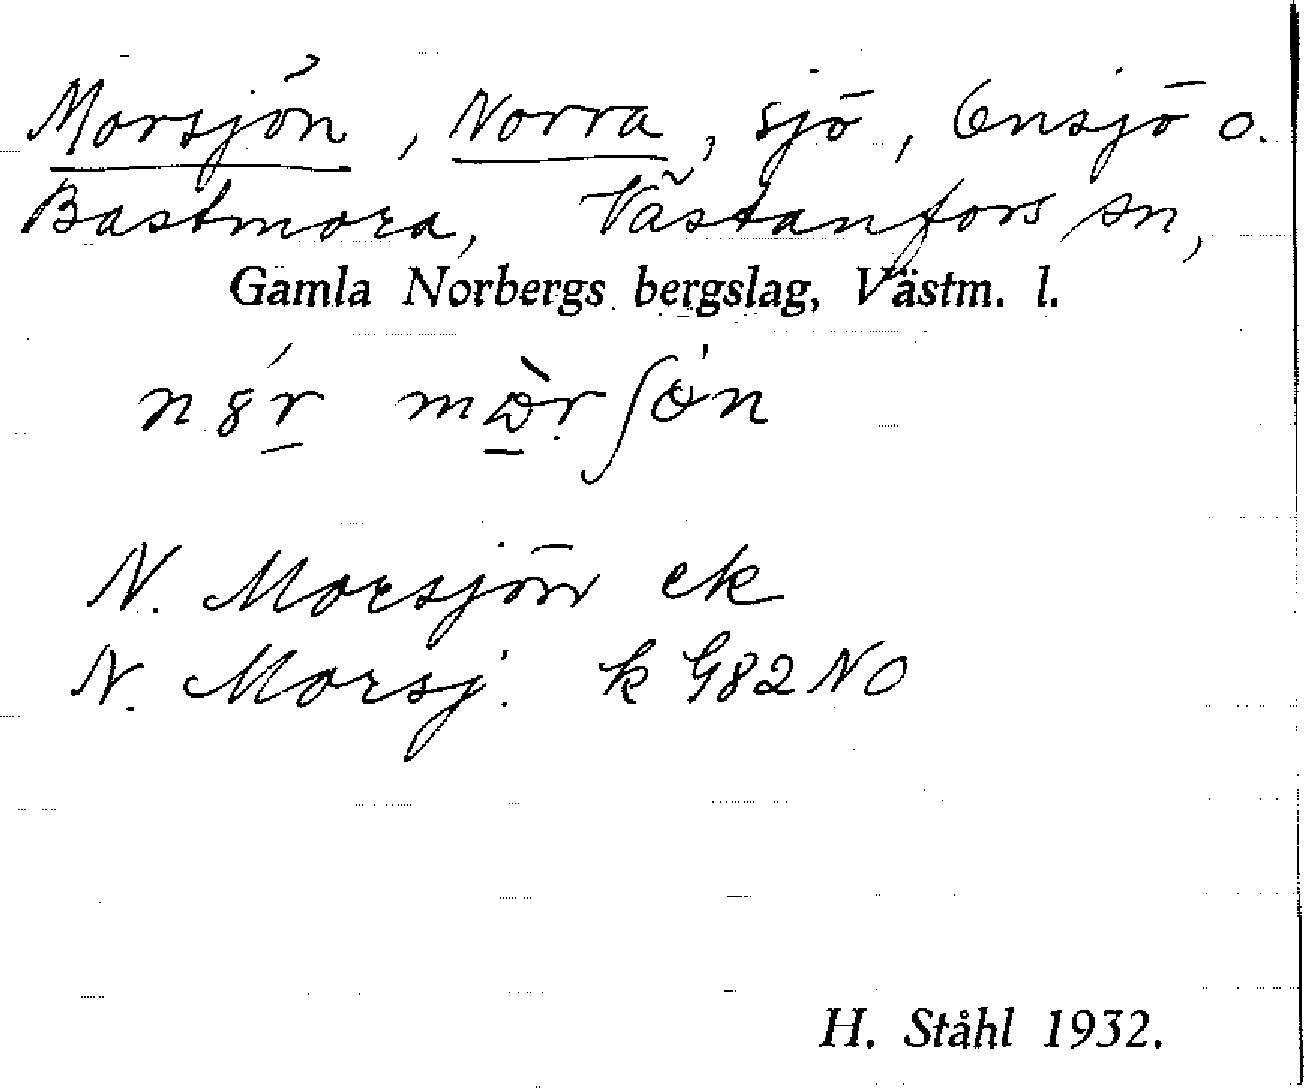 Morsjön, Norra, sjö, Ensjö o.
Bastmora, Västanfors sn,
Gamla Norbergs bergslag, Västm. l.
N. Morsjön ek
N. Morsj. k G82 NO
H. Ståhl 1932.